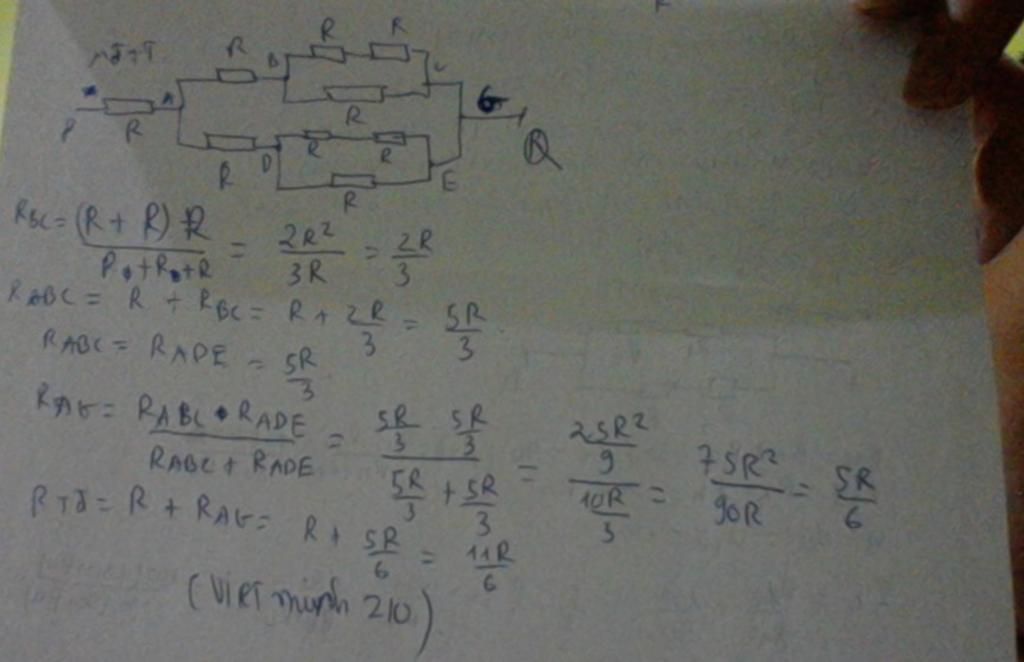 R R
R B C
P R A G Q
R
R D R R
R E
R_BC = (R + R) R / R + R + R = 2R² / 3R = 2R / 3
R_ABC = R + R_BC = R + 2R / 3 = 5R / 3
R_ABC = R_ADE = 5R / 3
R_AG = R_ABC • R_ADE / R_ABC + R_ADE = 5R/3 5R/3 / 5R/3 + 5R/3 = 25R²/9 / 10R/3 = 75R² / 90R = 5R / 6
R_TĐ = R + R_AG = R + 5R / 6 = 11R / 6
210)